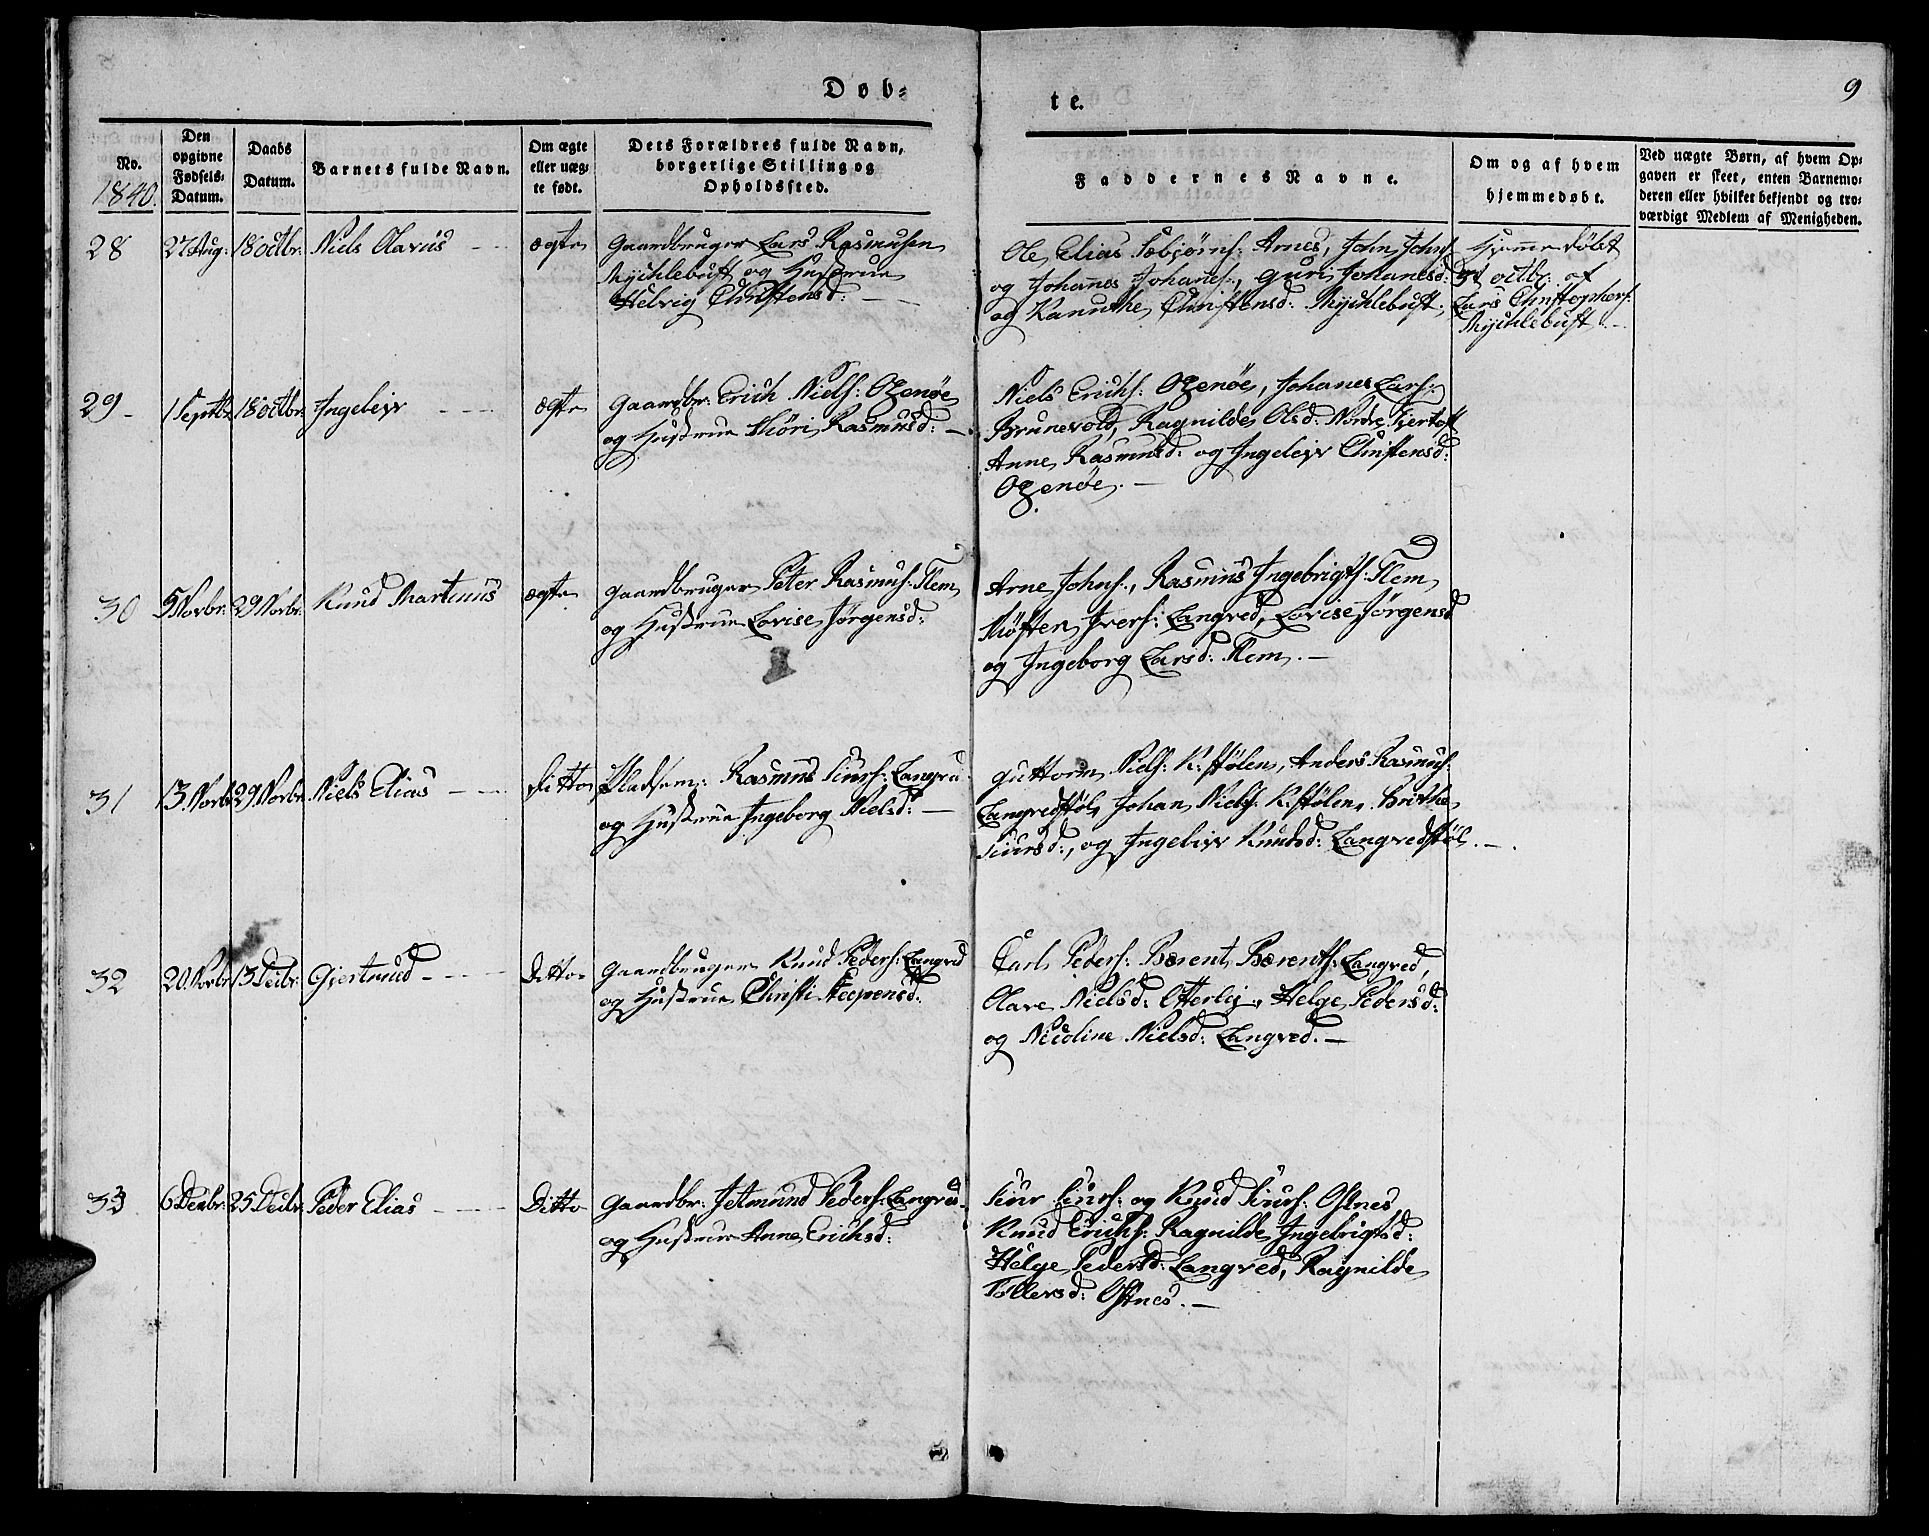 Døb-
te.
9
No.
1840.
Den
opgivne
Fødsels-
Datum.
Daabs
Datum.
Barnets fulde Navn.
Om ægte
eller uæg-
te født.
Dets Forældres fulde Navn,
borgerlige Stilling og
Opholdssted.
Faddernes Navne.
Om og af hvem
hjemmedøbt.
Ved uægte Børn, af hvem Op-
gaven er skeet, enten Barnemo-
deren eller hvilket bekjendt og tro-
værdigt Medlem af Menigheden.
28
27 Aug:
18 octbr.
Niels Olavus
ægte
Gaardbruger Lars Rasmusen
Mychlebust og Hustrue
Helvig Christensd:
Ole Elias Arnes, John Johns:
og Johannes Johans:, Guri Johanesd:
og Kanuthe Christensd: Mychlebust.
Hjemmedøbt
octbr: af
Lars Christophers:
Mychlebust.
29
1 Septbr
18 octbr.
Ingeleiv
ægte
Gaardbr: Erich Niels: Ogenøe
og Hustrue Rasmusd:
Niels Erichs: Ogenøe, Johanes Lars:
Brunevold, Ragnilde Olsd: Nordre Fjertoft
Anne Rasmusd: og Ingeleiv Christensd:
Ogenøe.
30
5 Novbr:
29 Novbr.
Knud Martinus
ægte
Gaardbruger Peter Rasmus: Flem
og Hustrue Lovise Jørgensd:
Arne Johns:, Rasmus Ingebrigts: Flem
Ivers: Langved, Lovise Jørgensd
og Ingeborg Larsd: Flem.
31
13. Novbr
29 Novbr.
Niels Elias
Ditto
Pladsem: Rasmus Siurs: Langved
og Hustrue Ingeborg Nielsd:
Guttorm Niels: K:stølen, Anders Rasmus:
Langvedstøl, Johan Niels: K:stølen, Brithe
Siursd:, og Ingeleiv Knudsd: Langvedstøl.
32
20. Novbr
13 Decbr.
Gjertrud
Ditto
Gaardbruger Knud Peders: Langved
og Hustrue Christi Steepensd:
Carl Peders: Berent Berents: Langved,
Olave Nielsd: Otterlej, Helge Pedersd:
og Nicoline Nielsd: Langved.
33
6 Decbr:
25 Decbr.
Peder Elias
Ditto
Gaardbr: Jetmund Peders: Langved
og Hustrue Anne Erichsd:
Siur Siurs: og Knud Siurs: Ostnes
Knud Erichs: Ragnilde Ingebrigtsd:
Helge Pedersd: Langved, Ragnilde
Tollevsd: Ostnes.